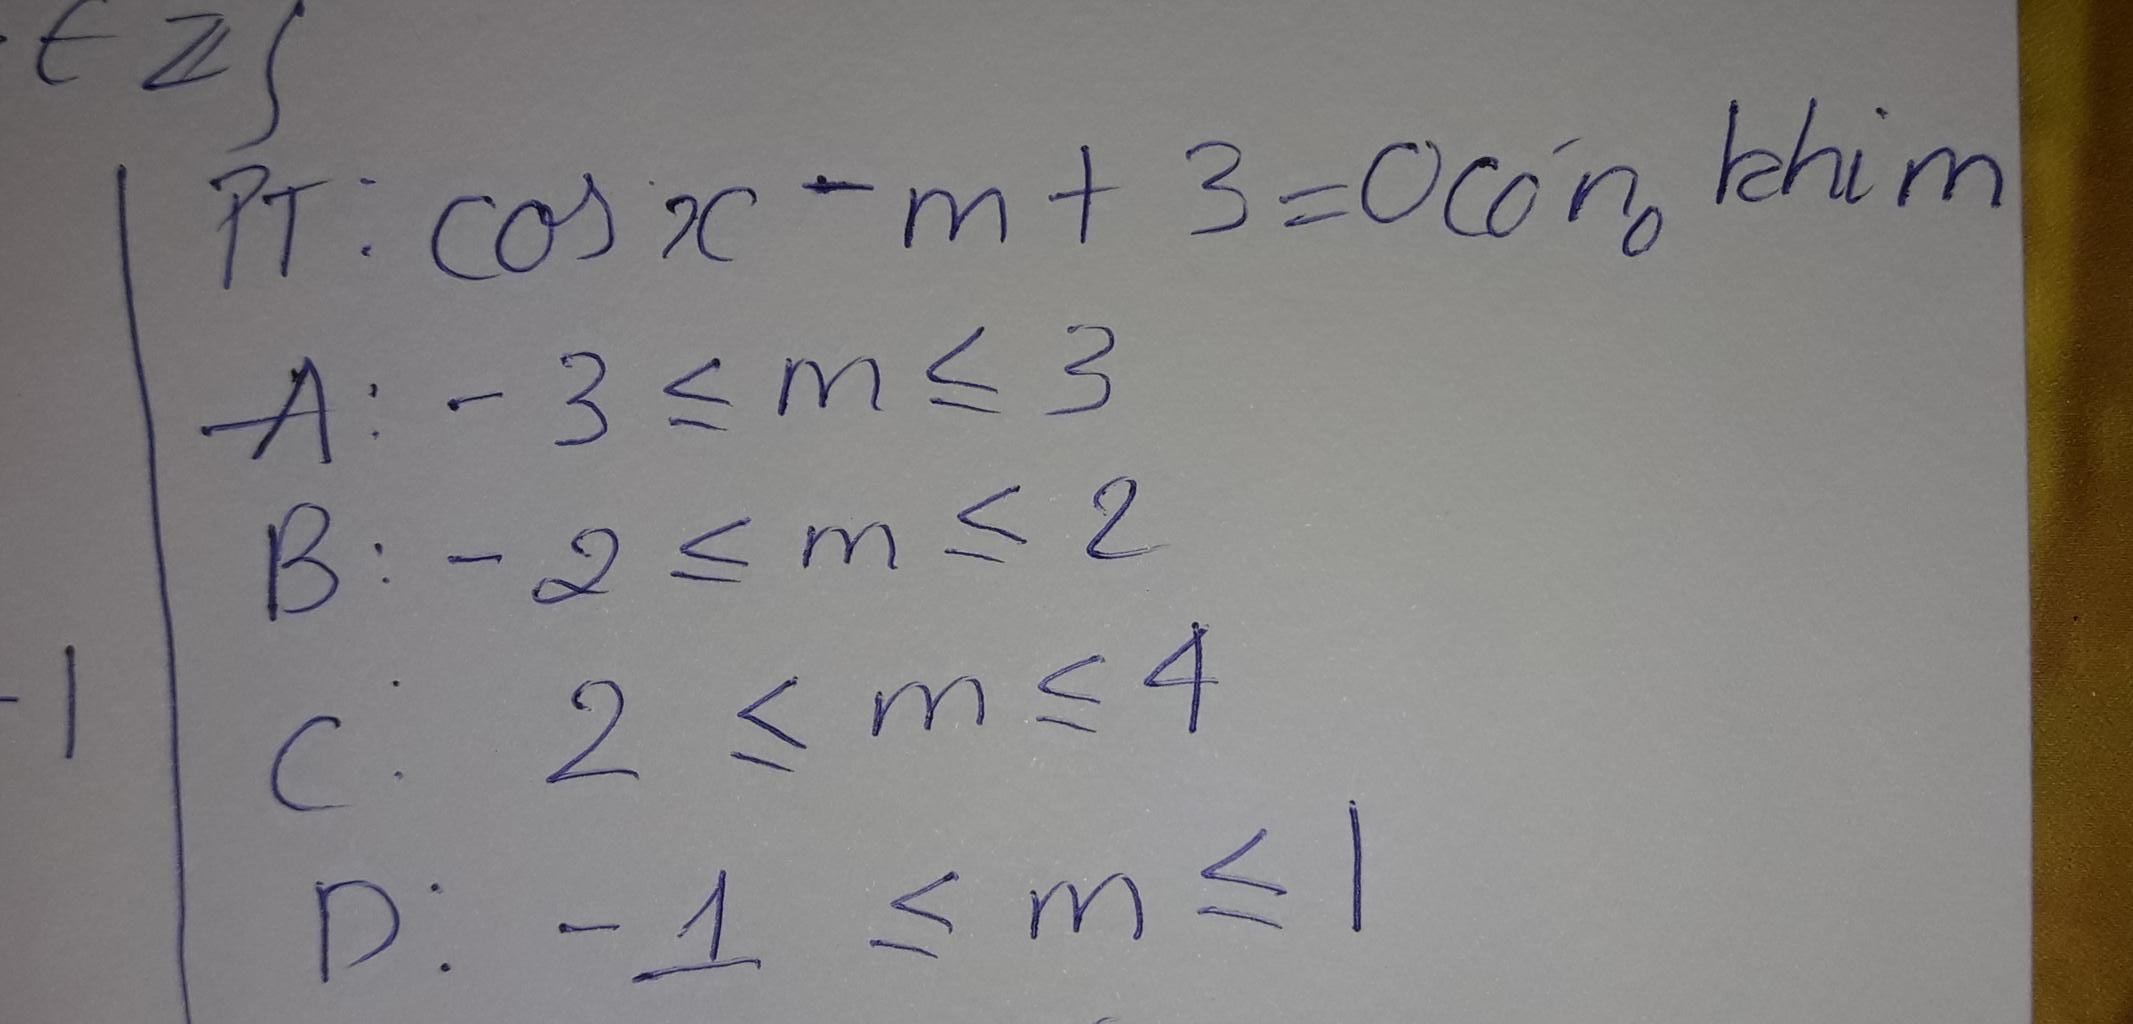 ∈ Z}
PT: cos x - m + 3 = 0 có n₀ khi m
A: - 3 ≤ m ≤ 3
B: - 2 ≤ m ≤ 2
C: 2 ≤ m ≤ 4
-1
D: - 1 ≤ m ≤ 1